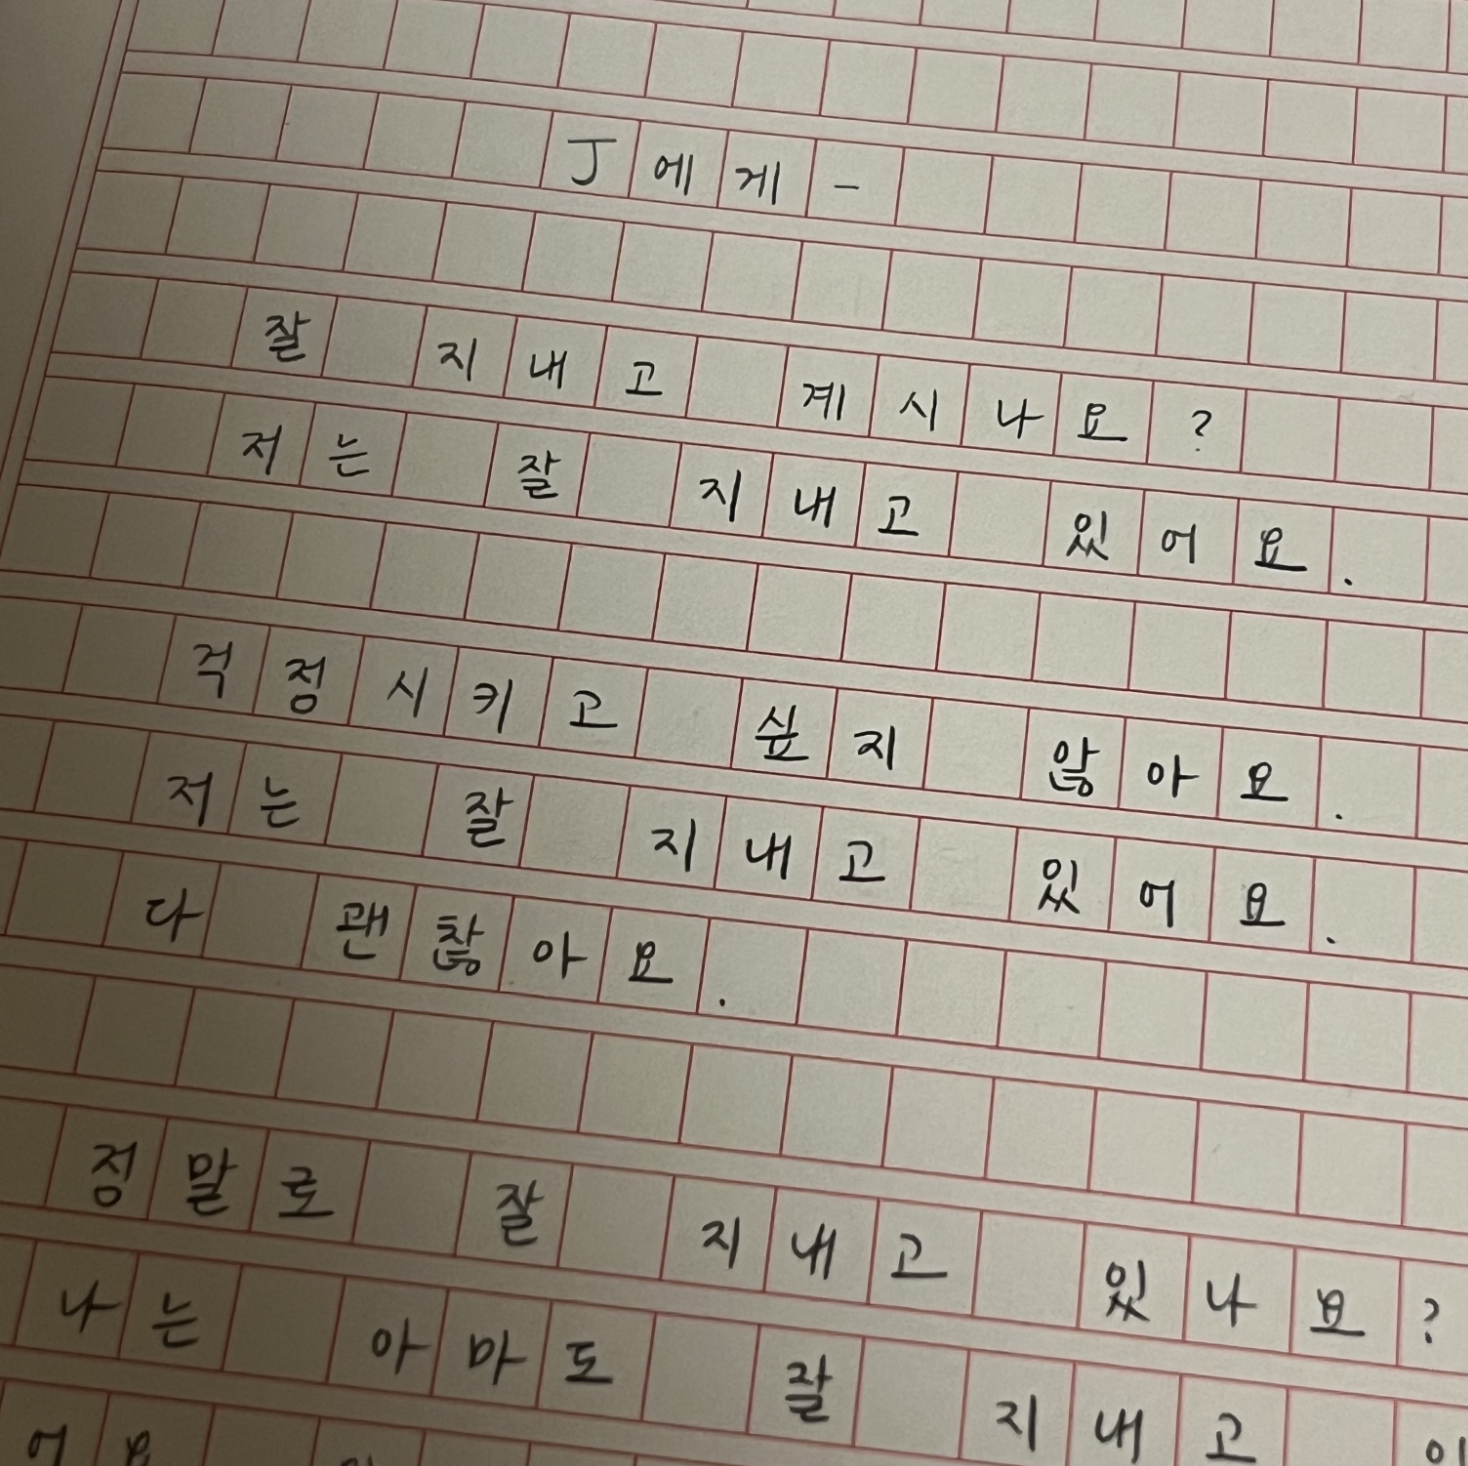 J에게-
잘 지내고 계시나요?
저는 잘 지내고 있어요.
걱정시키고 싶지 않아요.
저는 잘 지내고 있어요.
다 괜찮아요.
정말로 잘 지내고 있나요?
나는 아마도 잘 지내고
어요